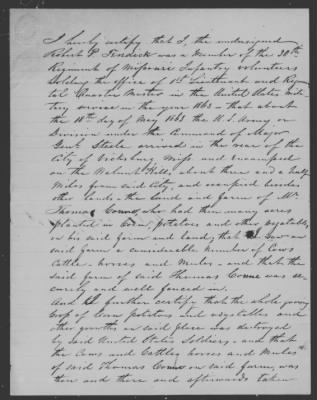 I hereby certify that I, the undersigned
Robert P. was a Member of the 30th
Regiment of Missouri Infantry volunteers
holding the office of 1st Lieutenant and Regimen
tal Quarter Master in the United States Mili
tary service in the year 1863 - that about
the 18th day of May 1863 the U.S. Army or
Division under the Command of Major
Genl Steele arrived in the rear of the
City of Vicksburg Miss and encamped
on the Walnut Hills, about three and a half
Miles from said City, and occupied besides
other lands - the land and farm of Mr
Thomas who had then many acres
planted in Corn, potatoes and other vegetables
on his said farm and land, that I saw on
said farm a considerable number of Cows
Cattle - horses and Mules - and that the
said farm of said Thomas was se-
curely and well fenced in.
And I further certify that the whole growing
Crop of Corn potatoes and vegetables and
other growths on said place was destroyed
by said United States Soldiers - and that
the Cows and Cattle, horses and Mules
of said Thomas on said farm, was
then and there and afterwards taken